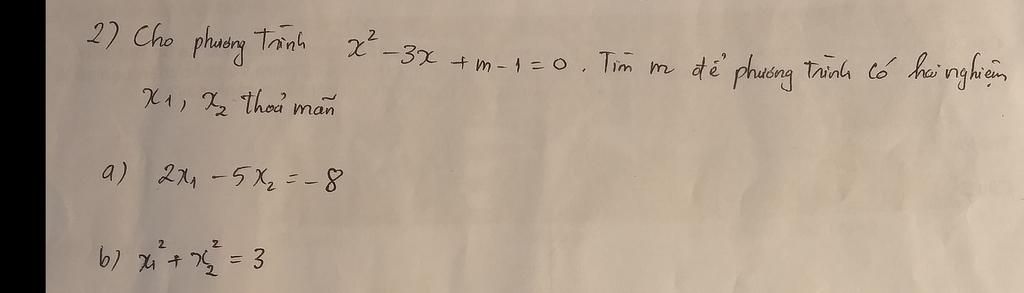 2) Cho phương trình x² - 3x + m - 1 = 0. Tìm m để phương trình có hai nghiệm
x₁, x₂ thoả mãn
a) 2x₁ - 5x₂ = -8
b) x₁² + x₂² = 3